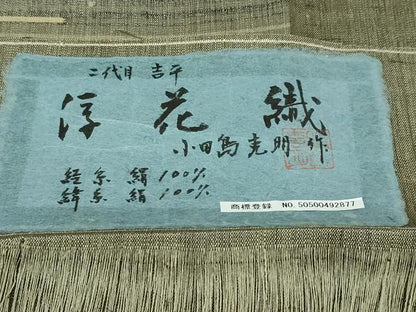 二代目 吉平
浮花織
小田島克明 作
経糸 絹100%
緯糸 絹100%
商標登録 NO. 50500492877